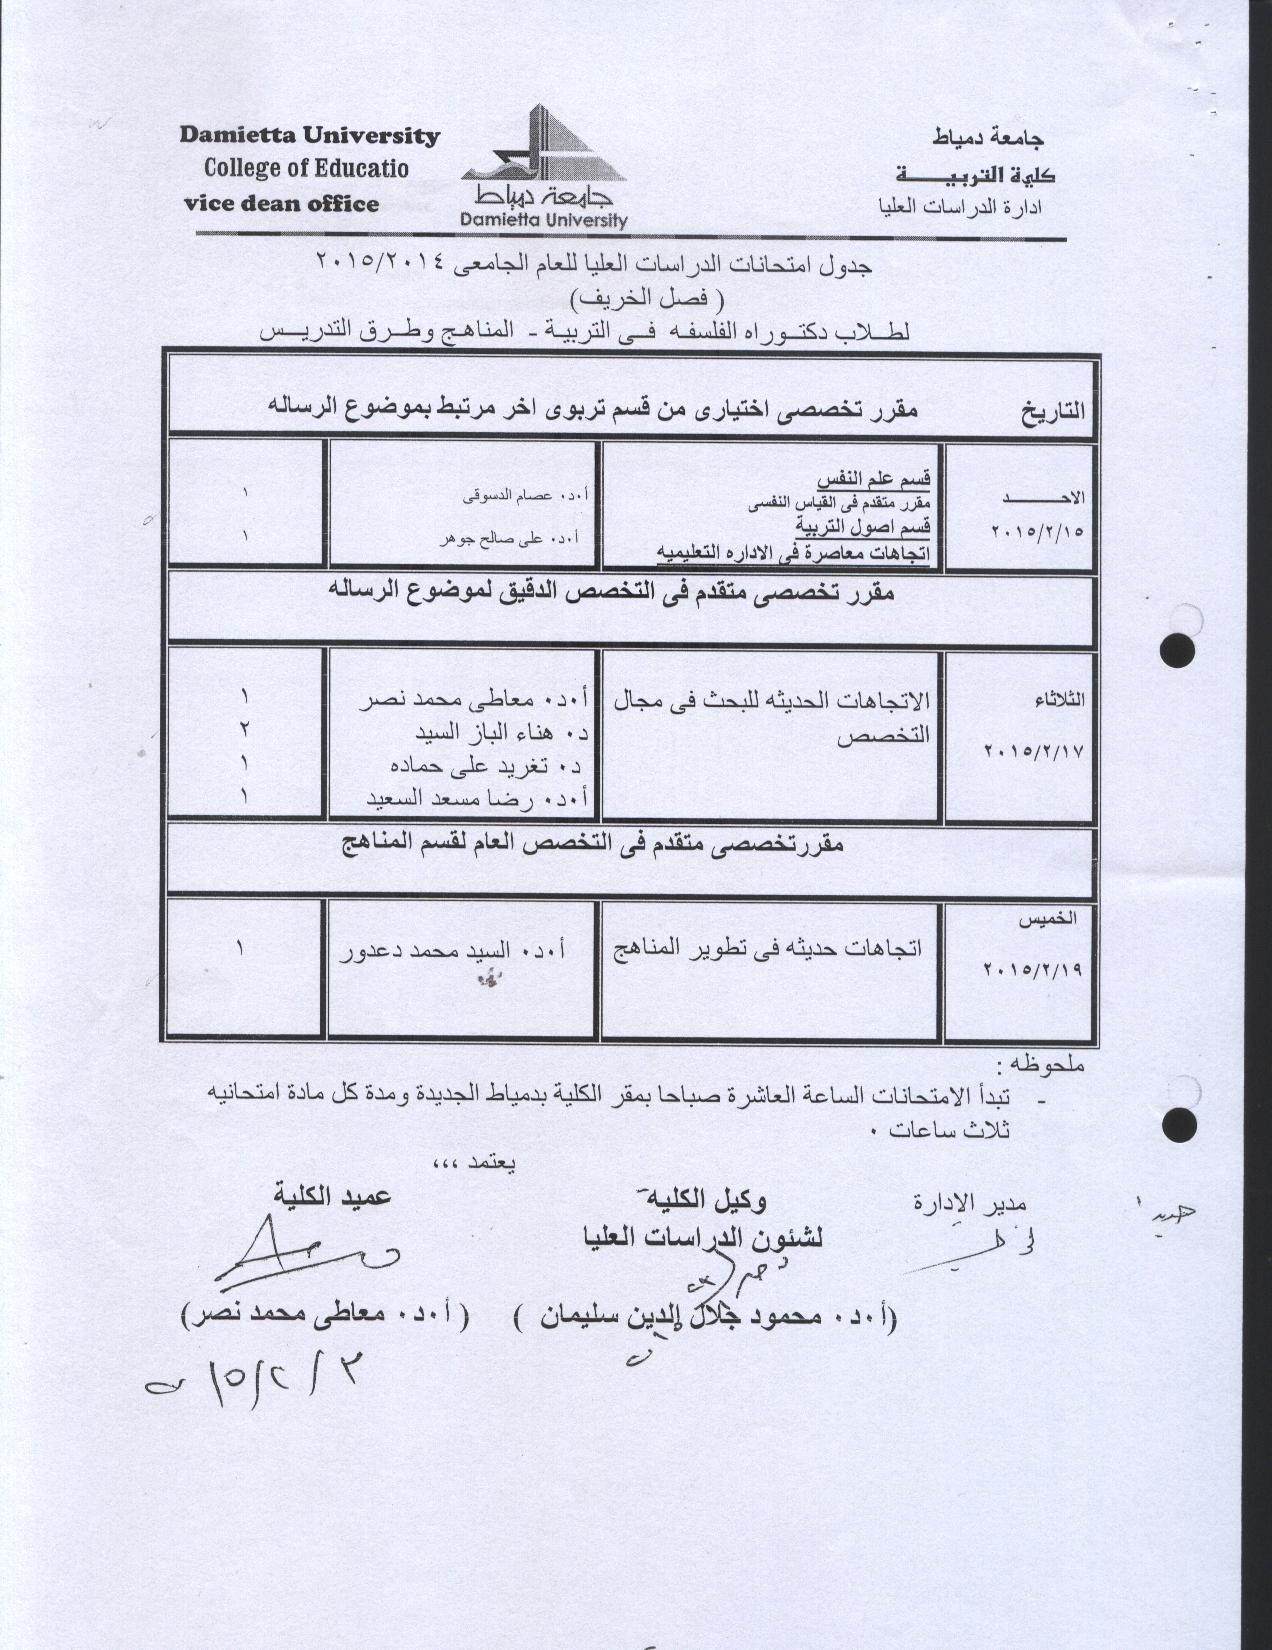 Damietta University
College of Educatio
vice dean office
جامعة دمياط
Damietta University
جامعة دمياط
كلية التربيـــــة
ادارة الدراسات العليا
جدول امتحانات الدراسات العليا للعام الجامعى ٢٠١٥/٢٠١٤
( فصل الخريف)
لطــلاب دكتــوراه الفلسفه فــى التربيــة - المناهـج وطــرق التدريــس
التاريخ مقرر تخصصى اختيارى من قسم تربوى اخر مرتبط بموضوع الرساله
الاحـــــــد
٢٠١٥/٢/١٥
قسم علم النفس
مقرر متقدم فى القياس النفسى
قسم اصول التربية
اتجاهات معاصرة فى الاداره التعليميه
أ٠د٠ عصام الدسوقى
أ٠د٠ على صالح جوهر
١
١
مقرر تخصصى متقدم فى التخصص الدقيق لموضوع الرساله
الثلاثاء
٢٠١٥/٢/١٧
الاتجاهات الحديثه للبحث فى مجال
التخصص
أ٠د٠ معاطى محمد نصر
د٠ هناء الباز السيد
د٠ تغريد على حماده
أ٠د٠ رضا مسعد السعيد
١
٢
١
١
مقررتخصصى متقدم فى التخصص العام لقسم المناهج
الخميس
٢٠١٥/٢/١٩
اتجاهات حديثه فى تطوير المناهج
أ٠د٠ السيد محمد دعدور
١
ملحوظه :
- تبدأ الامتحانات الساعة العاشرة صباحا بمقر الكلية بدمياط الجديدة ومدة كل مادة امتحانيه
ثلاث ساعات ٠
يعتمد ،،،
مدير الإدارة
وكيل الكليه
لشئون الدراسات العليا
عميد الكلية
(أ٠د٠ محمود جلال الدين سليمان )
( أ٠د٠ معاطى محمد نصر)